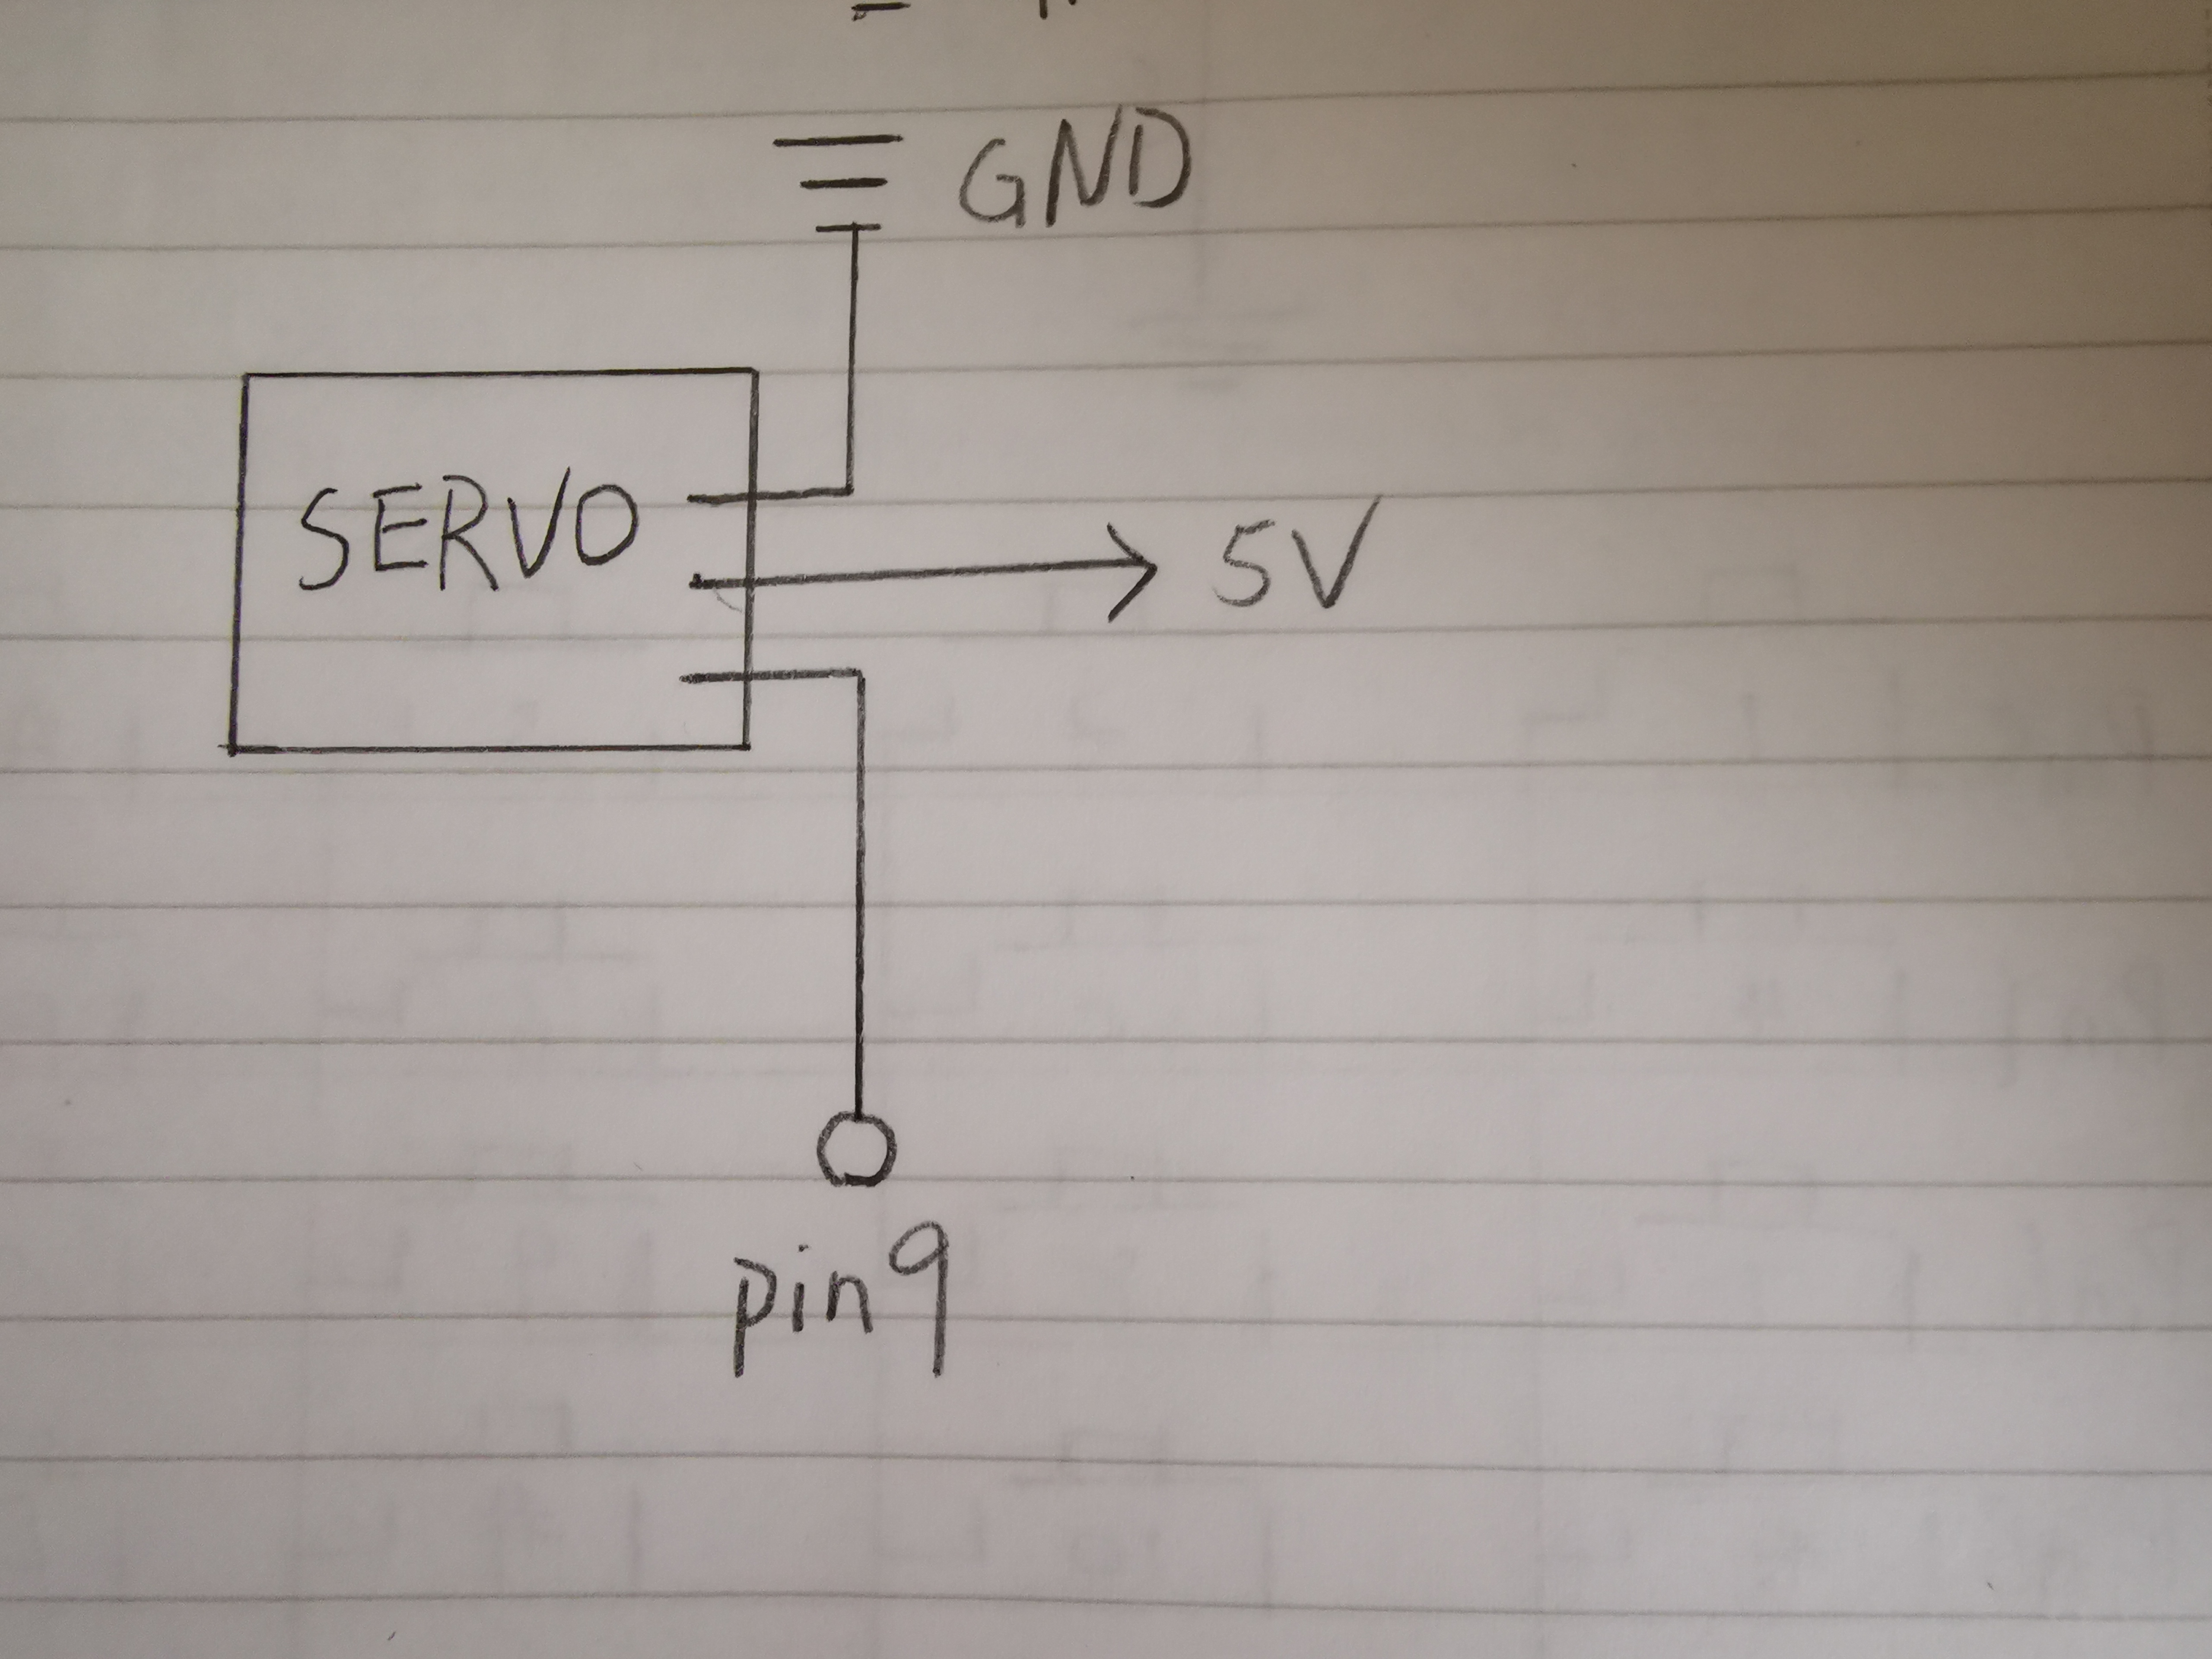 GND
SERVO
5V
pin9